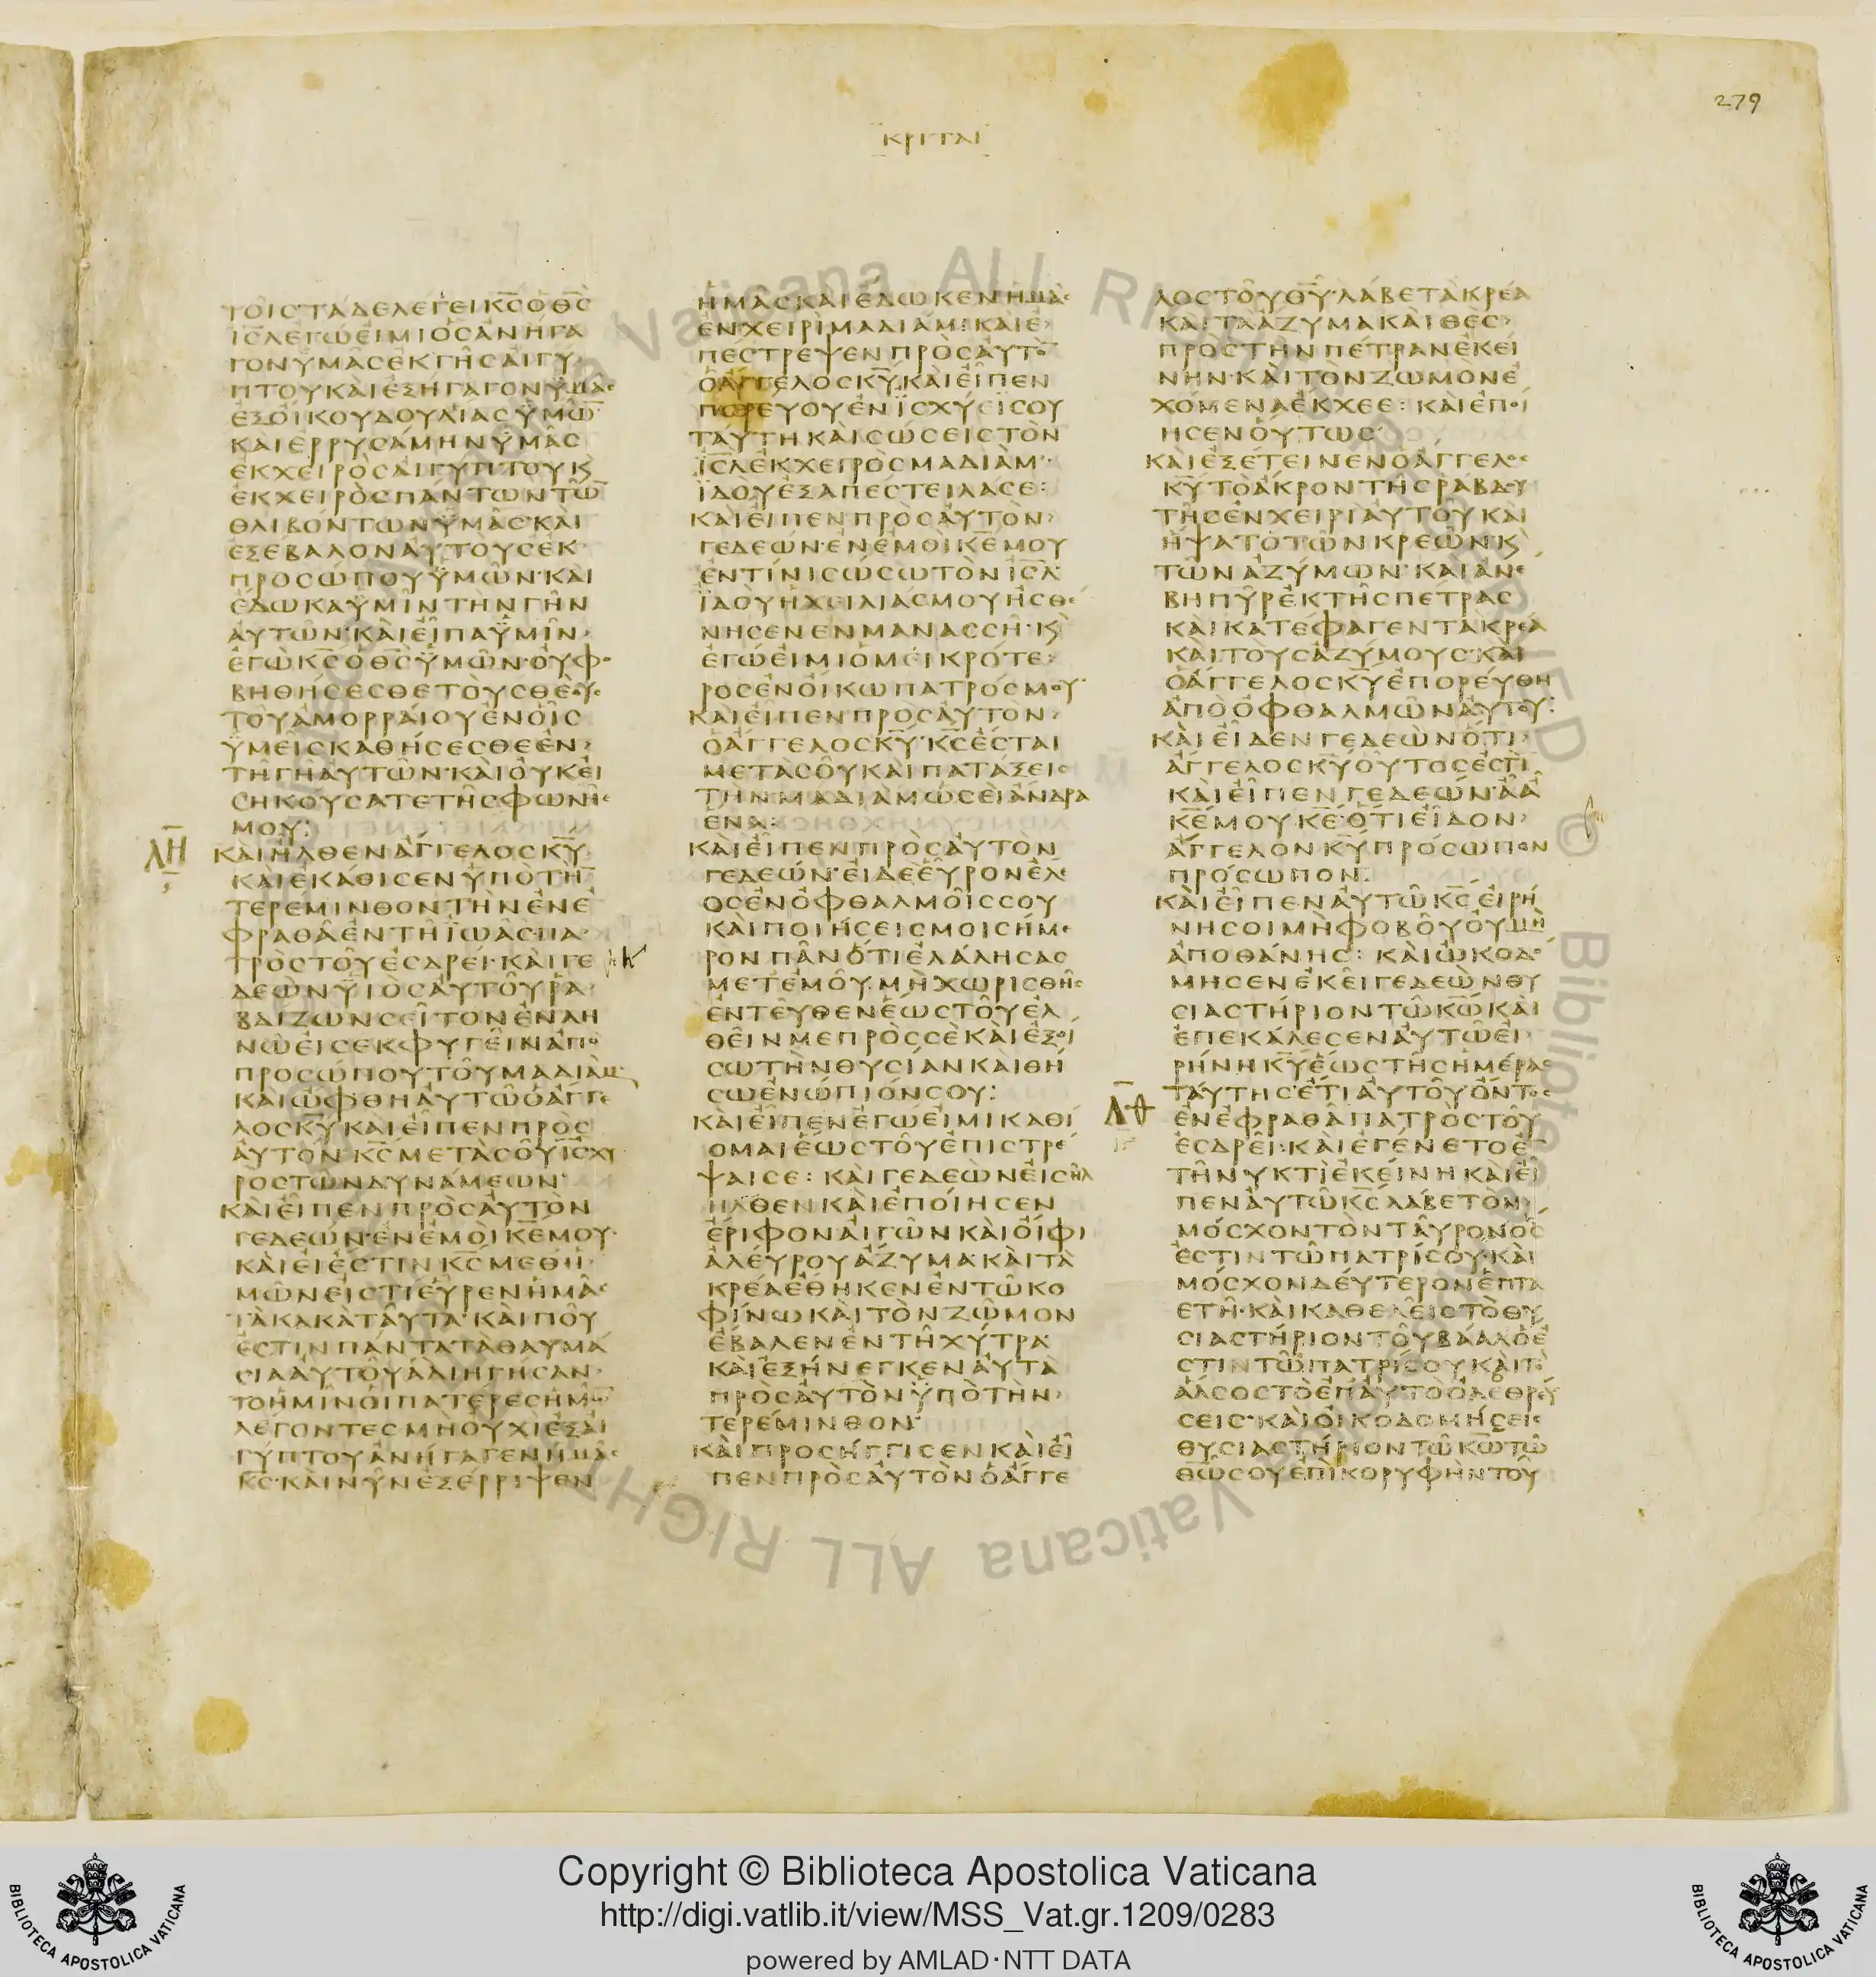 279
ΚΡΙΤΑΙ
ΤΟΙΣΤΑΔΕΛΕΓΕΙΚΣΟΘΣ
ΙΣΛΕΓΩΕΙΜΙΟΣΑΝΗΓΑ
ΓΟΝΥΜΑΣΕΚΓΗΣΑΙΓΥ
ΠΤΟΥΚΑΙΕΞΗΓΑΓΟΝΥΜΑΣ
ΕΞΟΙΚΟΥΔΟΥΛΙΑΣΥΜΩ
ΚΑΙΕΡΡΥΣΑΜΗΝΥΜΑΣ
ΕΚΧΕΙΡΟΣΑΙΓΥΠΤΟΥΚ
ΕΚΧΕΙΡΟΣΠΑΝΤΩΝΤΩ
ΘΛΙΒΟΝΤΩΝΥΜΑΣΚΑΙ
ΕΞΕΒΑΛΟΝΑΥΤΟΥΣΕΚ
ΠΡΟΣΩΠΟΥΥΜΩΝ·ΚΑΙ
ΕΔΩΚΑΥΜΙΝΤΗΝΓΗΝ
ΑΥΤΩΝ·ΚΑΙΕΙΠΑΥΜΙΝ
ΕΓΩΚΣΟΘΣΥΜΩΝ·ΟΥΦΟ
ΒΗΘΗΣΕΣΘΕΤΟΥΣΘΕΟΥΣ
ΤΟΥΑΜΟΡΡΑΙΟΥΕΝΟΙΣ
ΥΜΕΙΣΚΑΘΗΣΕΣΘΕΕΝ
ΤΗΓΗΑΥΤΩΝ·ΚΑΙΟΥΚΕΙ
ΣΗΚΟΥΣΑΤΕΤΗΣΦΩΝΗΣ
ΜΟΥ:
ΛΗ
ΚΑΙΗΛΘΕΝΑΓΓΕΛΟΣΚΥ
ΚΑΙΕΚΑΘΙΣΕΝΥΠΟΤΗ
ΤΕΡΕΜΙΝΘΟΝΤΗΝΕΝΕ
ΦΡΑΘΑΕΝΤΗΙΩΑΣΠΑ
ΤΡΟΣΤΟΥΕΣΔΡΕΙ·ΚΑΙΓΕ
ΔΕΩΝΥΙΟΣΑΥΤΟΥΡΑ
ΒΔΙΖΩΝΣΕΙΤΟΝΕΝΛΗ
ΝΩΕΙΣΕΚΦΥΓΕΙΝΑΠΟ
ΠΡΟΣΩΠΟΥΤΟΥΜΑΔΙΑΜ
ΚΑΙΩΦΘΗΑΥΤΩΟΑΓΓΕ
ΛΟΣΚΥΚΑΙΕΙΠΕΝΠΡΟΣ
ΑΥΤΟΝ·ΚΣΜΕΤΑΣΟΥΙΣΧΥ
ΡΟΣΤΩΝΔΥΝΑΜΕΩΝ
ΚΑΙΕΙΠΕΝΠΡΟΣΑΥΤΟΝ
ΓΕΔΕΩΝ·ΕΝΕΜΟΙΚΕΜΟΥ
ΚΑΙΕΙΕΣΤΙΝΚΣΜΕΘΗ
ΜΩΝΕΙΣΤΙΕΥΡΕΝΗΜΑΣ
ΤΑΚΑΚΑΤΑΥΤΑ·ΚΑΙΠΟΥ
ΕΣΤΙΝΠΑΝΤΑΤΑΘΑΥΜΑ
ΣΙΑΑΥΤΟΥΑΔΙΗΓΗΣΑΝ
ΤΟΗΜΙΝΟΙΠΑΤΕΡΕΣΗΜΩ
ΛΕΓΟΝΤΕΣΜΗΟΥΧΙΕΞΑΙ
ΓΥΠΤΟΥΑΝΗΓΑΓΕΝΗΜΑΣ
ΚΣ·ΚΑΙΝΥΝΕΞΕΡΡΙΨΕΝ
ΗΜΑΣΚΑΙΕΔΩΚΕΝΗΜΑΣ
ΕΝΧΕΙΡΙΜΑΔΙΑΜ:ΚΑΙΕ
ΠΕΣΤΡΕΨΕΝΠΡΟΣΑΥΤΟ
ΟΑΓΓΕΛΟΣΚΥ·ΚΑΙΕΙΠΕΝ
ΠΟΡΕΥΟΥΕΝΙΣΧΥΕΙΣΟΥ
ΤΑΥΤΗΚΑΙΣΩΣΕΙΣΤΟΝ
ΙΣΛΕΚΧΕΡΟΣΜΑΔΙΑΜ·
ΙΔΟΥΕΞΑΠΕΣΤΕΙΛΑΣΕ:
ΚΑΙΕΙΠΕΝΠΡΟΣΑΥΤΟΝ
ΓΕΔΕΩΝ·ΕΝΕΜΟΙΚΕΜΟΥ
ΕΝΤΙΝΙΣΩΣΩΤΟΝΙΣΛ
ΙΔΟΥΗΧΕΙΛΙΑΣΜΟΥΗΣΘΕ
ΝΗΣΕΝΕΝΜΑΝΑΣΣΗ·Κ
ΕΓΩΕΙΜΙΟΜΕΙΚΡΟΤΕ
ΡΟΣΕΝΟΙΚΩΠΑΤΡΟΣΜΟΥ
ΚΑΙΕΙΠΕΝΠΡΟΣΑΥΤΟΝ
ΟΑΓΓΕΛΟΣΚΥ·ΚΣΕΣΤΑΙ
ΜΕΤΑΣΟΥΚΑΙΠΑΤΑΞΕΙΣ
ΤΗΝΜΑΔΙΑΜΩΣΕΙΑΝΔΡΑ
ΕΝΑ:
ΚΑΙΕΙΠΕΝΠΡΟΣΑΥΤΟΝ
ΓΕΔΕΩΝ·ΕΙΔΕΕΥΡΟΝΕΛΕ
ΟΣΕΝΟΦΘΑΛΜΟΙΣΣΟΥ
ΚΑΙΠΟΙΗΣΕΙΣΜΟΙΣΗΜΕ
ΡΟΝΠΑΝΟΤΙΕΛΑΛΗΣΑΣ
ΜΕΤΕΜΟΥ·ΜΗΧΩΡΙΣΘΗΣ
ΕΝΤΕΥΘΕΝΕΩΣΤΟΥΕΛ
ΘΕΙΝΜΕΠΡΟΣΣΕΚΑΙΕΞΟΙ
ΣΩΤΗΝΘΥΣΙΑΝΚΑΙΘΗ
ΣΩΕΝΩΠΙΟΝΣΟΥ:
ΚΑΙΕΙΠΕΝΕΓΩΕΙΜΙΚΑΘΙ
ΟΜΑΙΕΩΣΤΟΥΕΠΙΣΤΡΕ
ΨΑΙΣΕ:ΚΑΙΓΕΔΕΩΝΕΙΣΗΛ
ΗΛΘΕΝΚΑΙΕΠΟΙΗΣΕΝ
ΕΡΙΦΟΝΑΙΓΩΝΚΑΙΟΙΦΙ
ΑΛΕΥΡΟΥΑΖΥΜΑ·ΚΑΙΤΑ
ΚΡΕΑΕΘΗΚΕΝΕΝΤΩΚΟ
ΦΙΝΩΚΑΙΤΟΝΖΩΜΟΝ
ΕΒΑΛΕΝΕΝΤΗΧΥΤΡΑ
ΚΑΙΕΞΗΝΕΓΚΕΝΑΥΤΑ
ΠΡΟΣΑΥΤΟΝΥΠΟΤΗΝ
ΤΕΡΕΜΙΝΘΟΝ·
ΚΑΙΠΡΟΣΗΓΓΙΣΕΝΚΑΙΕΙ
ΠΕΝΠΡΟΣΑΥΤΟΝΟΑΓΓΕ
ΛΟΣΤΟΥΘΥ·ΛΑΒΕΤΑΚΡΕΑ
ΚΑΙΤΑΑΖΥΜΑΚΑΙΘΕΣ
ΠΡΟΣΤΗΝΠΕΤΡΑΝΕΚΕΙ
ΝΗΝ·ΚΑΙΤΟΝΖΩΜΟΝΕ
ΧΟΜΕΝΑΕΚΧΕΕ:ΚΑΙΕΠΟΙ
ΗΣΕΝΟΥΤΩΣ
ΚΑΙΕΞΕΤΕΙΝΕΝΟΑΓΓΕΛΟΣ
ΚΥΤΟΑΚΡΟΝΤΗΣΡΑΒΔΟΥ
ΤΗΣΕΝΧΕΙΡΙΑΥΤΟΥΚΑΙ
ΗΨΑΤΟΤΩΝΚΡΕΩΝΚ
ΤΩΝΑΖΥΜΩΝ·ΚΑΙΑΝΕ
ΒΗΠΥΡΕΚΤΗΣΠΕΤΡΑΣ
ΚΑΙΚΑΤΕΦΑΓΕΝΤΑΚΡΕΑ
ΚΑΙΤΟΥΣΑΖΥΜΟΥΣ·ΚΑΙ
ΟΑΓΓΕΛΟΣΚΥΕΠΟΡΕΥΘΗ
ΑΠΟΟΦΘΑΛΜΩΝΑΥΤΟΥ:
ΚΑΙΕΙΔΕΝΓΕΔΕΩΝΟΤΙ
ΑΓΓΕΛΟΣΚΥΟΥΤΟΣΕΣΤΙ
ΚΑΙΕΙΠΕΝΓΕΔΕΩΝ·ΑΑ
ΚΕΜΟΥΚΕ·ΟΤΙΕΙΔΟΝ
ΑΓΓΕΛΟΝΚΥΠΡΟΣΩΠΟΝ
ΠΡΟΣΩΠΟΝ:
ΚΑΙΕΙΠΕΝΑΥΤΩΚΣΕΙΡΗ
ΝΗΣΟΙΜΗΦΟΒΟΥΟΥΜΗ
ΑΠΟΘΑΝΗΣ:ΚΑΙΩΚΟΔΟ
ΜΗΣΕΝΕΚΕΙΓΕΔΕΩΝΘΥ
ΣΙΑΣΤΗΡΙΟΝΤΩΚΩΚΑΙ
ΕΠΕΚΑΛΕΣΕΝΑΥΤΩΕΙ
ΡΗΝΗΚΥΕΩΣΤΗΣΗΜΕΡΑΣ
ΤΑΥΤΗΣ·ΕΤΙΑΥΤΟΥΟΝΤΟΣ
ΛΘ
ΕΝΕΦΡΑΘΑΠΑΤΡΟΣΤΟΥ
ΕΣΔΡΕΙ:ΚΑΙΕΓΕΝΕΤΟΕ
ΤΗΝΥΚΤΙΕΚΕΙΝΗΚΑΙΕΙ
ΠΕΝΑΥΤΩΚΣΛΑΒΕΤΟΝ
ΜΟΣΧΟΝΤΟΝΤΑΥΡΟΝΟΣ
ΕΣΤΙΝΤΩΠΑΤΡΙΣΟΥ·ΚΑΙ
ΜΟΣΧΟΝΔΕΥΤΕΡΟΝΕΠΤΑ
ΕΤΗ·ΚΑΙΚΑΘΕΛΕΙΣΤΟΘΥ
ΣΙΑΣΤΗΡΙΟΝΤΟΥΒΑΑΛΟΕ
ΣΤΙΝΤΩΠΑΤΡΙΣΟΥΚΑΙΤΟ
ΑΛΣΟΣΤΟΕΠΑΥΤΟΟΛΕΘΡΕΥ
ΣΕΙΣ·ΚΑΙΟΙΚΟΔΟΜΗΣΕΙΣ
ΘΥΣΙΑΣΤΗΡΙΟΝΤΩΚΩΤΩ
ΘΩΣΟΥΕΠΙΚΟΡΥΦΗΝΤΟΥ
Copyright © Biblioteca Apostolica Vaticana
http://digi.vatlib.it/view/MSS_Vat.gr.1209/0283
powered by AMLAD·NTT DATA
BIBLIOTECA APOSTOLICA VATICANA
BIBLIOTECA APOSTOLICA VATICANA